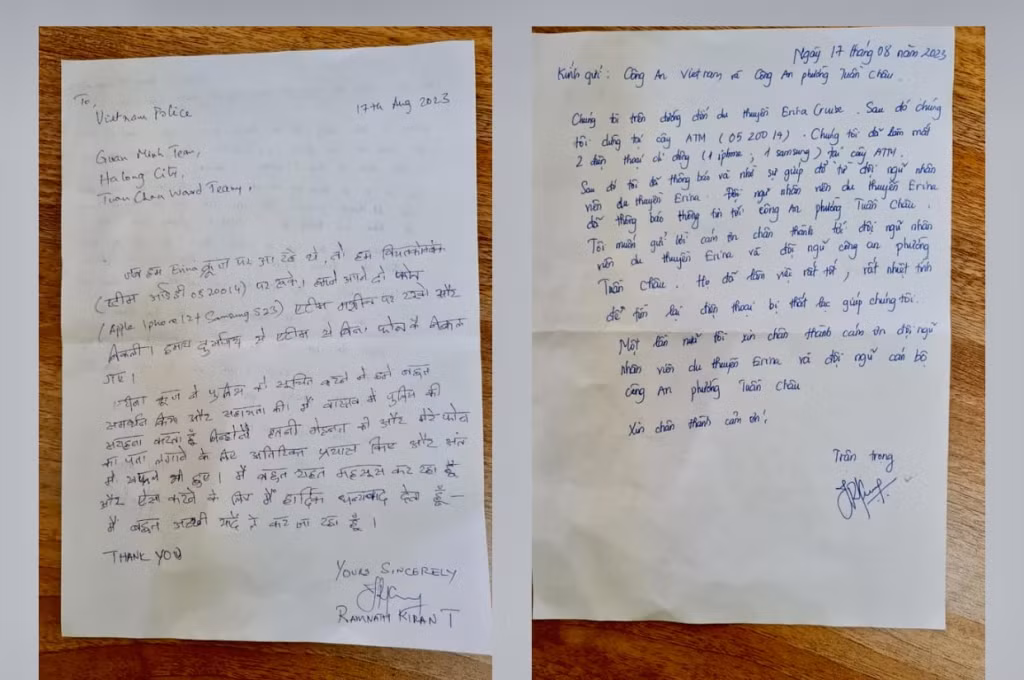 To,
Vietnam Police
17th Aug 2023
Guan Minh Team,
Halong City,
Tuan Chau Ward Team,
जब हम Erina क्रूज पर आ रहे थे, तो हम
(एटीम आईडी 0520014) पर रुके। हमने अपने दो फोन
(Apple Iphone 12 + Samsung S23) एटीम मशीन पर रखे और
दुर्भाग्य से एटीम से बिना फोन के निकल
गए।
क्रूज ने पुलिस को सूचित करने में हमें बहुत
समर्थन किया और सहायता की। मैं वास्तव में पुलिस की
सराहना करता हूँ जिन्होंने इतनी मेहनत की और मेरे फोन
का पता लगाने के लिए अतिरिक्त प्रयास किए और अंत
में सफल भी हुए। मैं बहुत राहत महसूस कर रहा हूँ
और ऐसा करने के लिए मैं हार्दिक धन्यवाद देता हूँ –
मैं बहुत अच्छी यादें ले कर जा रहा हूँ।
THANK YOU
YOURS SINCERELY
RAMNATH KIRAN T
Ngày 17 tháng 08 năm 2023
Kính gửi: Công An Việt Nam và Công An phường Tuần Châu.
Chúng tôi trên đường đến du thuyền Erina Cruise. Sau đó chúng
tôi dừng tại cây ATM (0520014). Chúng tôi đã làm mất
2 điện thoại di động (1 iphone, 1 samsung) tại cây ATM.
Sau đó tôi đã thông báo và nhờ sự giúp đỡ từ đội ngũ nhân
viên du thuyền Erina. Đội ngũ nhân viên du thuyền Erina
đã thông báo thông tin tới Công An phường Tuần Châu.
Tôi muốn gửi lời cảm ơn chân thành tới đội ngũ nhân
viên du thuyền Erina và đội ngũ công an phường
Tuần Châu. Họ đã làm việc rất tốt, rất nhiệt tình
để tìm lại điện thoại bị thất lạc giúp chúng tôi.
Một lần nữa tôi xin chân thành cảm ơn đội ngũ
nhân viên du thuyền Erina và đội ngũ cán bộ
công An phường Tuần Châu
Xin chân thành cảm ơn!
Trân trọng